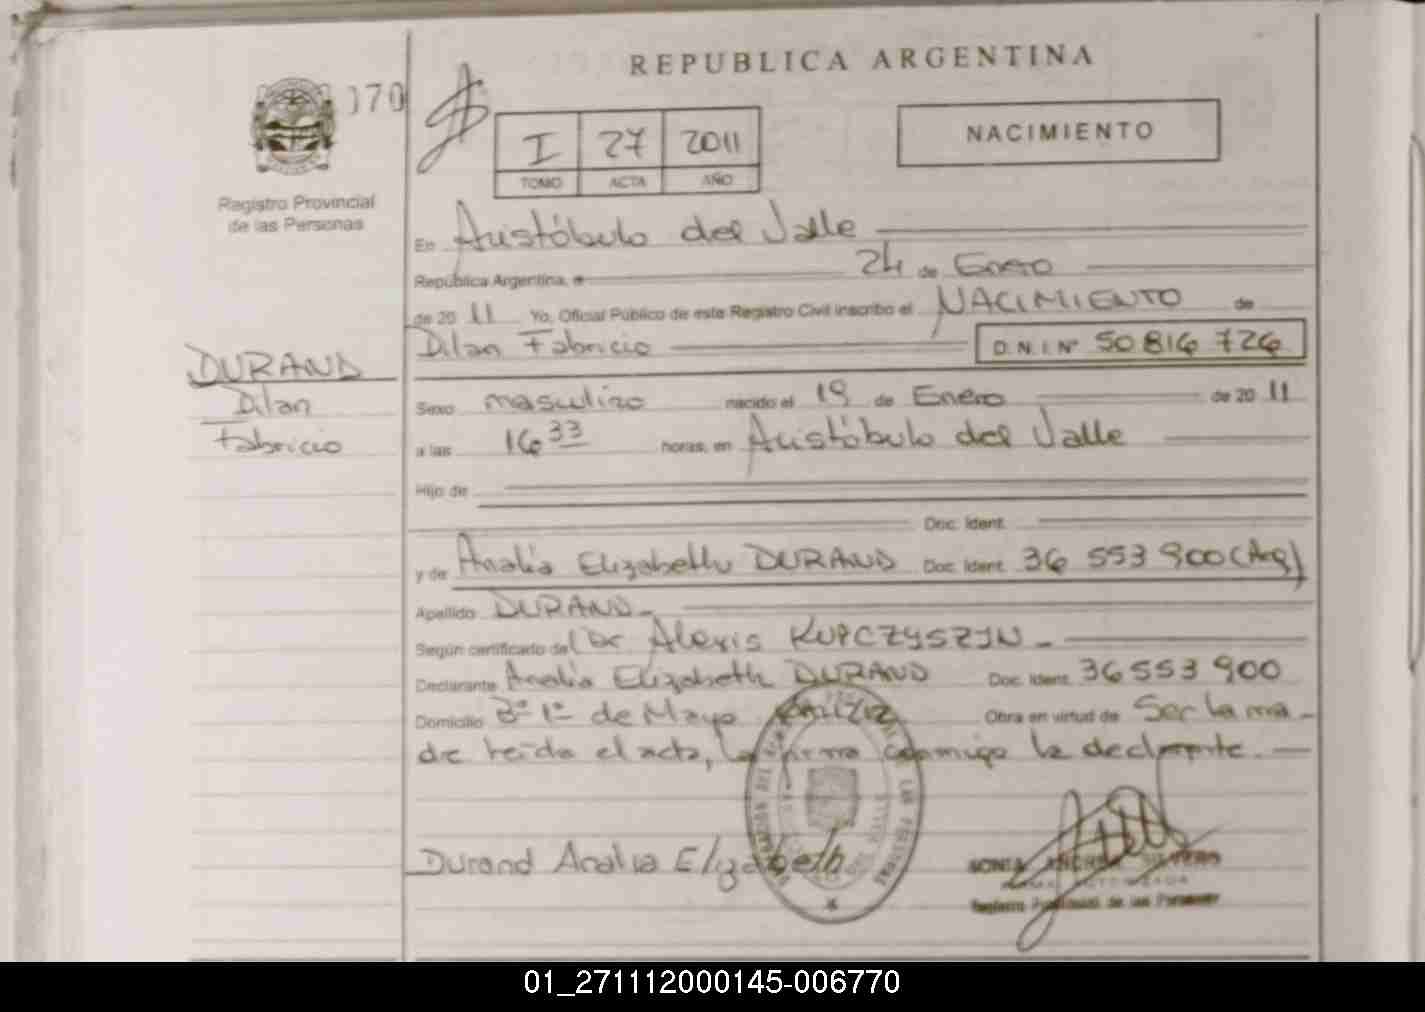 REPUBLICA ARGENTINA
070
I 27 2011
TOMO ACTA AÑO
NACIMIENTO
Registro Provincial
de las Personas
En Aristóbulo del Valle
República Argentina, a 24 de Enero
de 20 11 Yo, Oficial Público de este Registro Civil inscribo el NACIMIENTO de
Dilan Fabricio D.N.I.Nº 50 816 726
DURAND
Dilan
Fabricio
Sexo masculino nacido el 19 de Enero de 20 11
a las 16 33 horas, en Aristóbulo del Valle
Hijo de
Doc. Ident.
y de Analía Elizabeth DURAND Doc. Ident. 36 553 900 (Arg)
Apellido DURAND.-
Según certificado del Dr Alexis KUPCZYSZYN.-
Declarante Analía Elizabeth DURAND Doc. Ident. 36 553 900
Domicilio Bº 1º de Mayo Obra en virtud de Ser la ma-
dre leída el acta, la firma conmigo la declarante.-
Durand Analia Elizabeth
SONIA ANDREA
FIRMA AUTORIZADA
Registro Provincial de las Personas
01_271112000145-006770